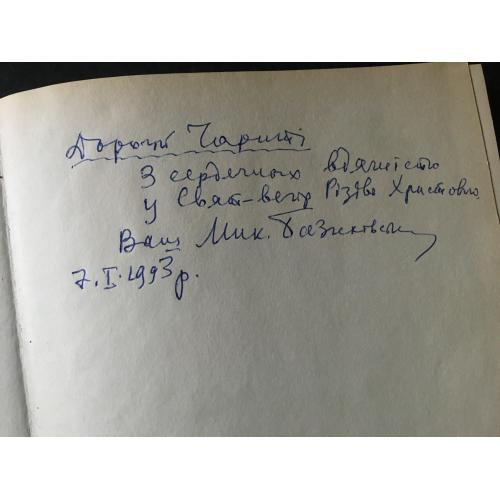 Дорогій Чариті
З сердечною вдячністю
у Свят-вечір Різдва Христового
Ваш Мик.
7.I.1993 р.